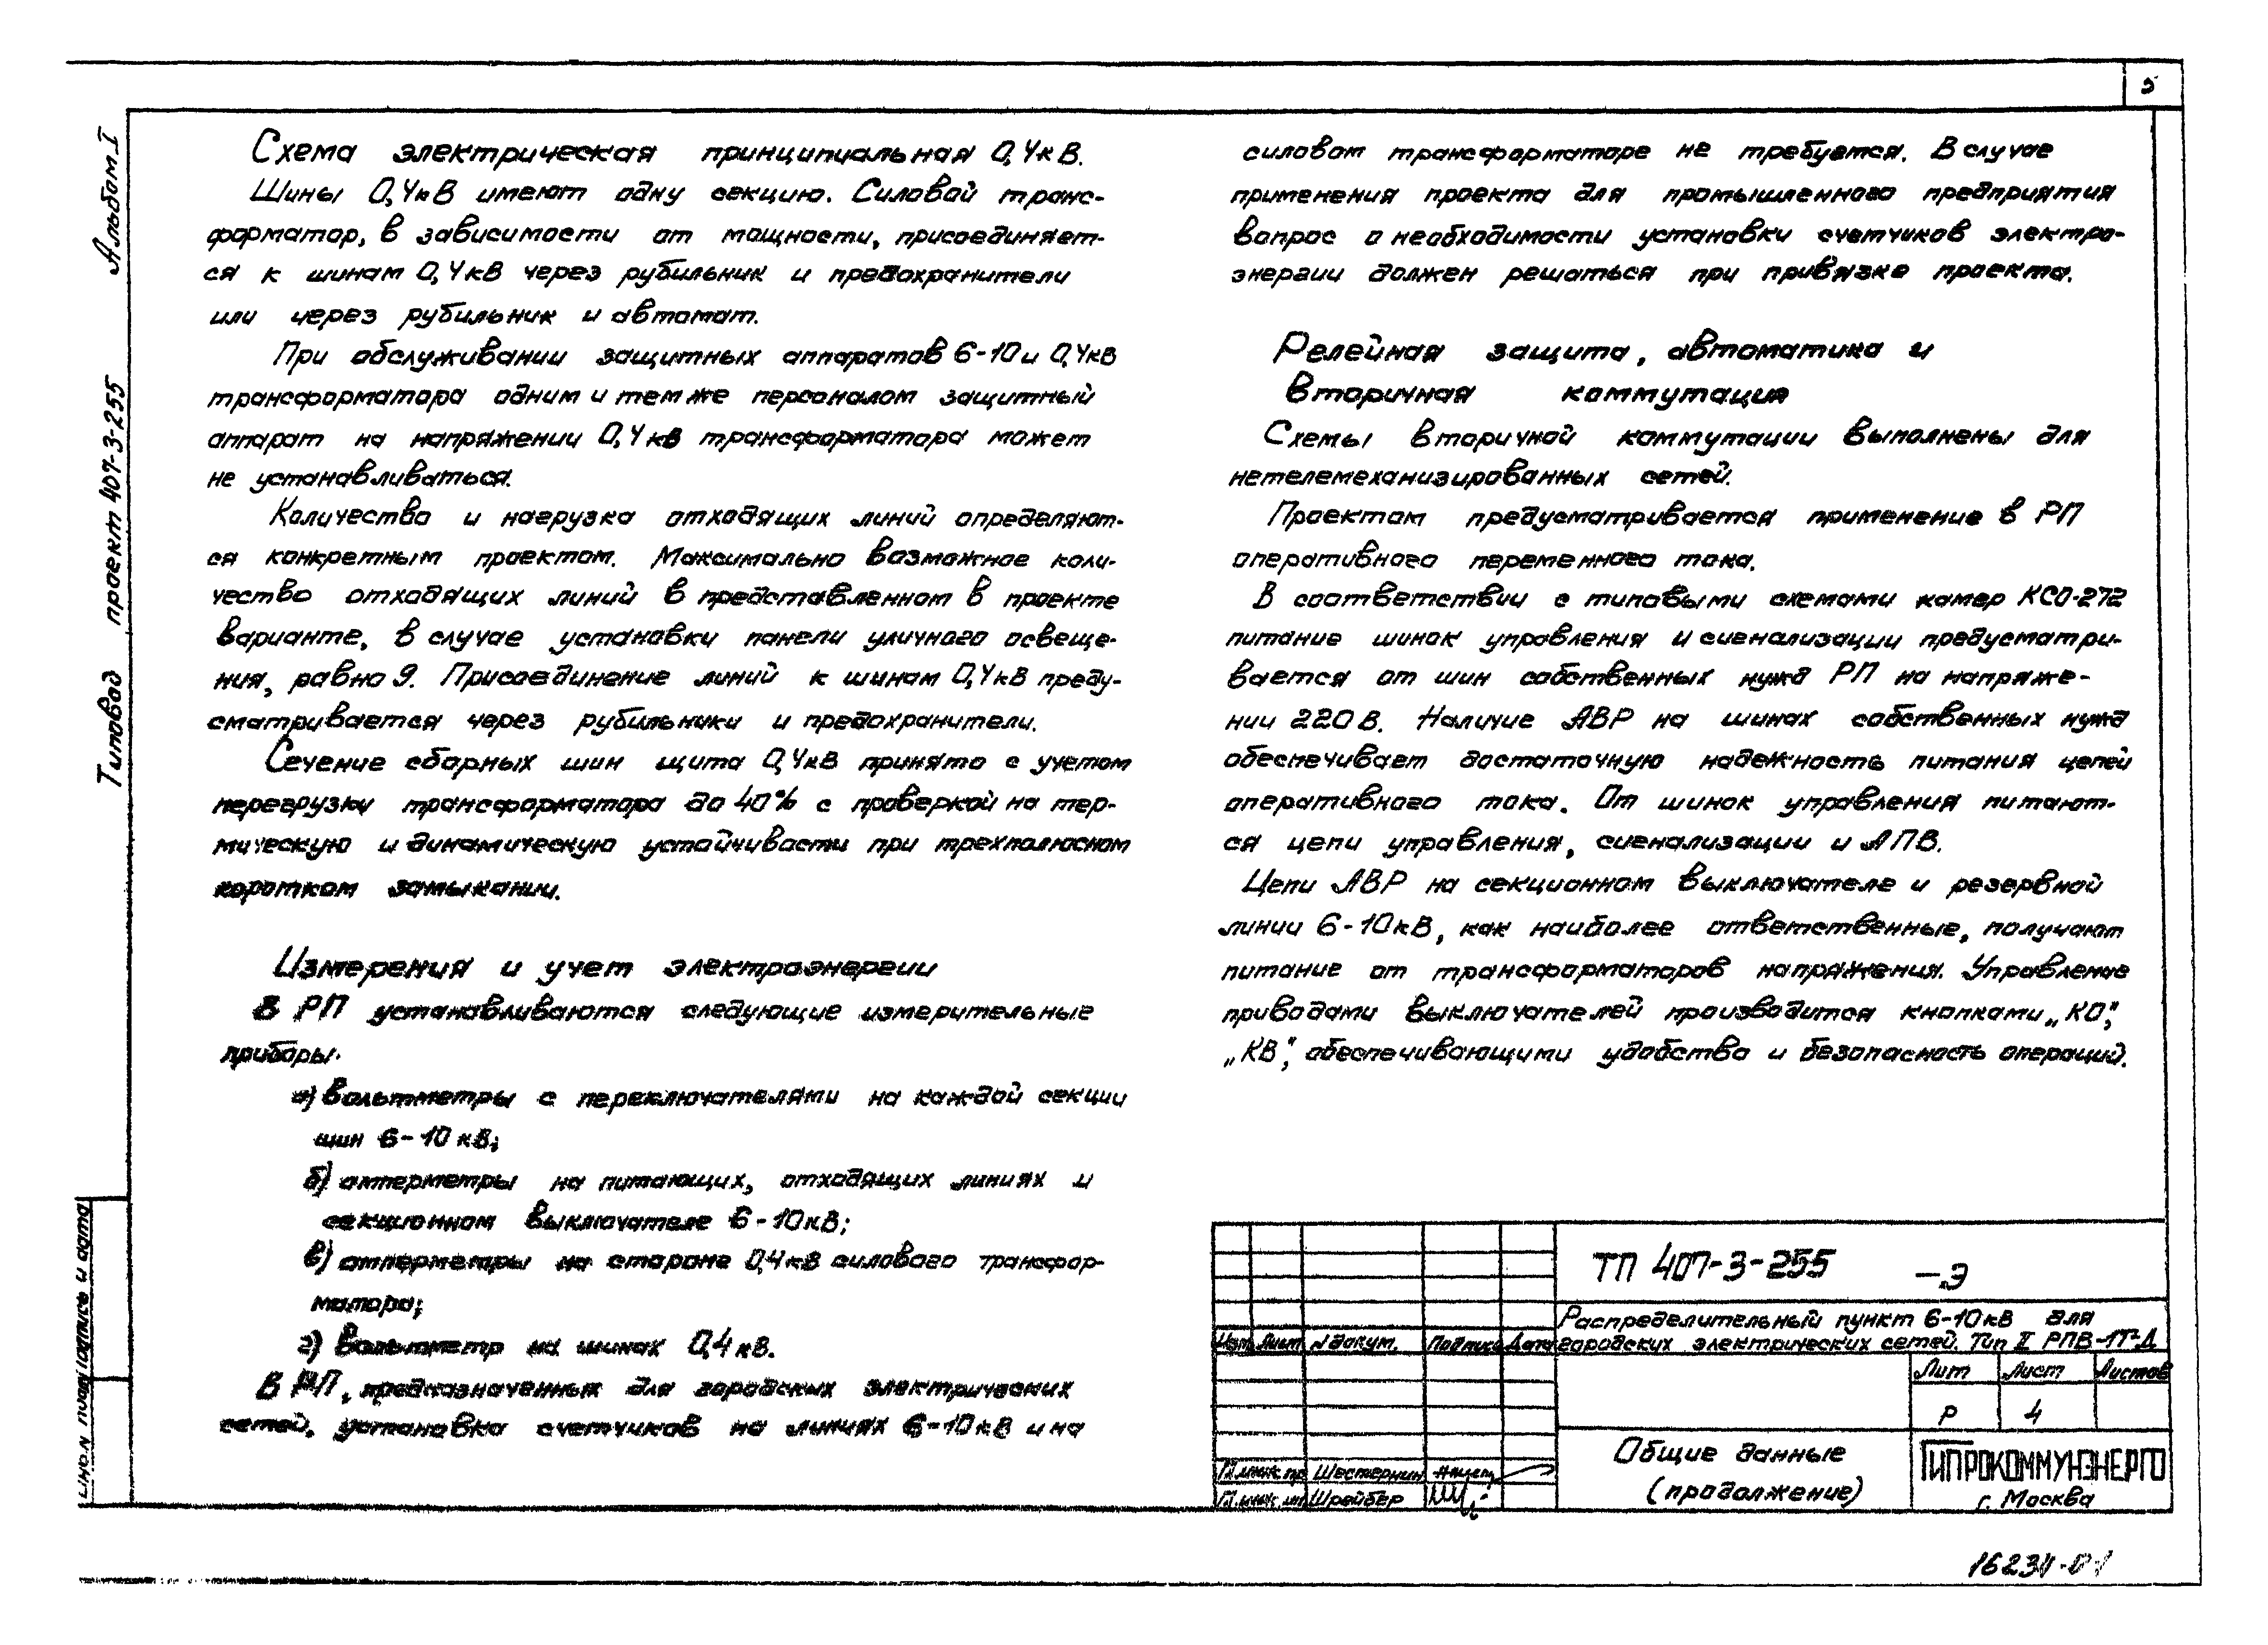 5
Альбом I
Типовой проект 407-3-255
Схема электрическая принципиальная 0,4кВ.
Шины 0,4кВ имеют одну секцию. Силовой транс-
форматор, в зависимости от мощности, присоединяет-
ся к шинам 0,4кВ через рубильник и предохранители
или через рубильник и автомат.
При обслуживании защитных аппаратов 6-10 и 0,4кВ
трансформатора одним и тем же персоналом защитный
аппарат на напряжении 0,4кВ трансформатора может
не устанавливаться.
Количество и нагрузка отходящих линий определяют-
ся конкретным проектом. Максимально возможное коли-
чество отходящих линий в представленном в проекте
варианте, в случае установки панели уличного освеще-
ния, равно 9. Присоединение линий к шинам 0,4кВ преду-
сматривается через рубильники и предохранители.
Сечение сборных шин щита 0,4кВ принято с учетом
перегрузки трансформатора до 40% с проверкой на тер-
мическую и динамическую устойчивости при трехполюсном
коротком замыкании.
Измерения и учет электроэнергии
В РП устанавливаются следующие измерительные
приборы.
а) Вольтметры с переключателями на каждой секции
шин 6-10кВ;
б) амперметры на питающих, отходящих линиях и
секционном выключателе 6-10кВ;
в) амперметры на стороне 0,4кВ силового трансфор-
матора;
г) Вольтметр на шинах 0,4кВ.
В РП, предназначенных для городских электрических
сетей, установка счетчиков на линиях 6-10кВ и на
силовом трансформаторе не требуется. В случае
применения проекта для промышленного предприятия
вопрос о необходимости установки счетчиков электро-
энергии должен решаться при привязке проекта.
Релейная защита, автоматика и
Вторичная коммутация
Схемы вторичной коммутации выполнены для
нетелемеханизированных сетей.
Проектом предусматривается применение в РП
оперативного переменного тока.
В соответствии с типовыми схемами камер КСО-272
питание шинок управления и сигнализации предусматри-
вается от шин собственных нужд РП на напряже-
нии 220В. Наличие АВР на шинах собственных нужд
обеспечивает достаточную надежность питания цепей
оперативного тока. От шинок управления питают-
ся цепи управления, сигнализации и АПВ.
Цепи АВР на секционном выключателе и резервной
линии 6-10кВ, как наиболее ответственные, получают
питание от трансформаторов напряжения. Управление
приводами выключателей производится кнопками „КО",
„КВ", обеспечивающими удобство и безопасность операций.
ТП 407-3-255 -Э
Распределительный пункт 6-10кВ для
Изм Лист N докум. Подпись Дата городских электрических сетей. Тип II РПВ-1Т-Д
Лит Лист Листов
Р 4
Общие данные
(продолжение)
ГИПРОКОММУНЭНЕРГО
г. Москва
Гл.инж.пр Шестернин
Гл.инж. Шрейбер
Инв.N подл Подпись и дата
16234-01